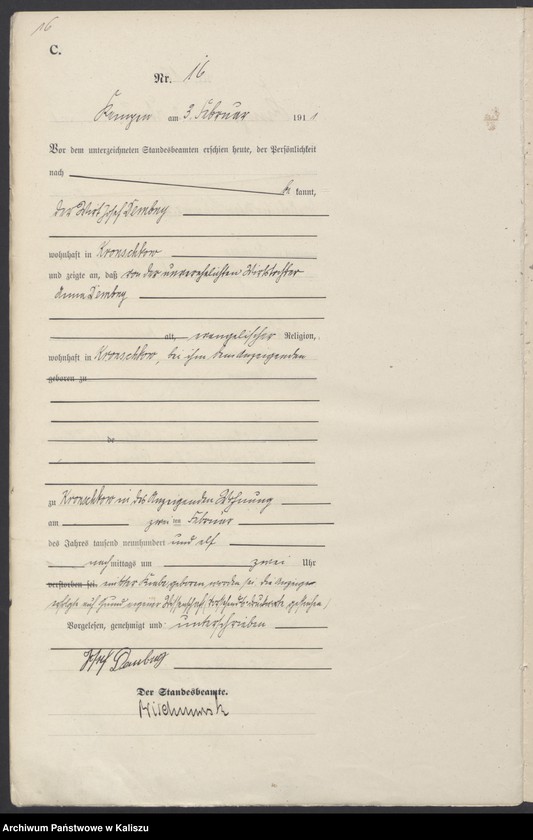 16
C.
Nr. 16
Kempen am 3. Februar 1911
Vor dem unterzeichneten Standesbeamten erschien heute, der Persönlichkeit
nach be kannt,
der Wirt Josef
wohnhaft in Kronschkow
und zeigte an, daß von der unverehelichten Wirtstochter
Anna
alt, evangelischer Religion,
wohnhaft in Kronschkow, bei ihm dem Anzeigenden
geboren zu
de
zu Kronschkow in des Anzeigenden Wohnung
am zwei ten Februar
des Jahres tausend neunhundert und elf
nachmittags um zwei Uhr
verstorben sei. ein toter Knabe geboren worden sei. Die Anzeige
erfolgte auf Grund eigener Wissenschaft.
Vorgelesen, genehmigt und unterschrieben
Josef
Der Standesbeamte.
Archiwum Państwowe w Kaliszu